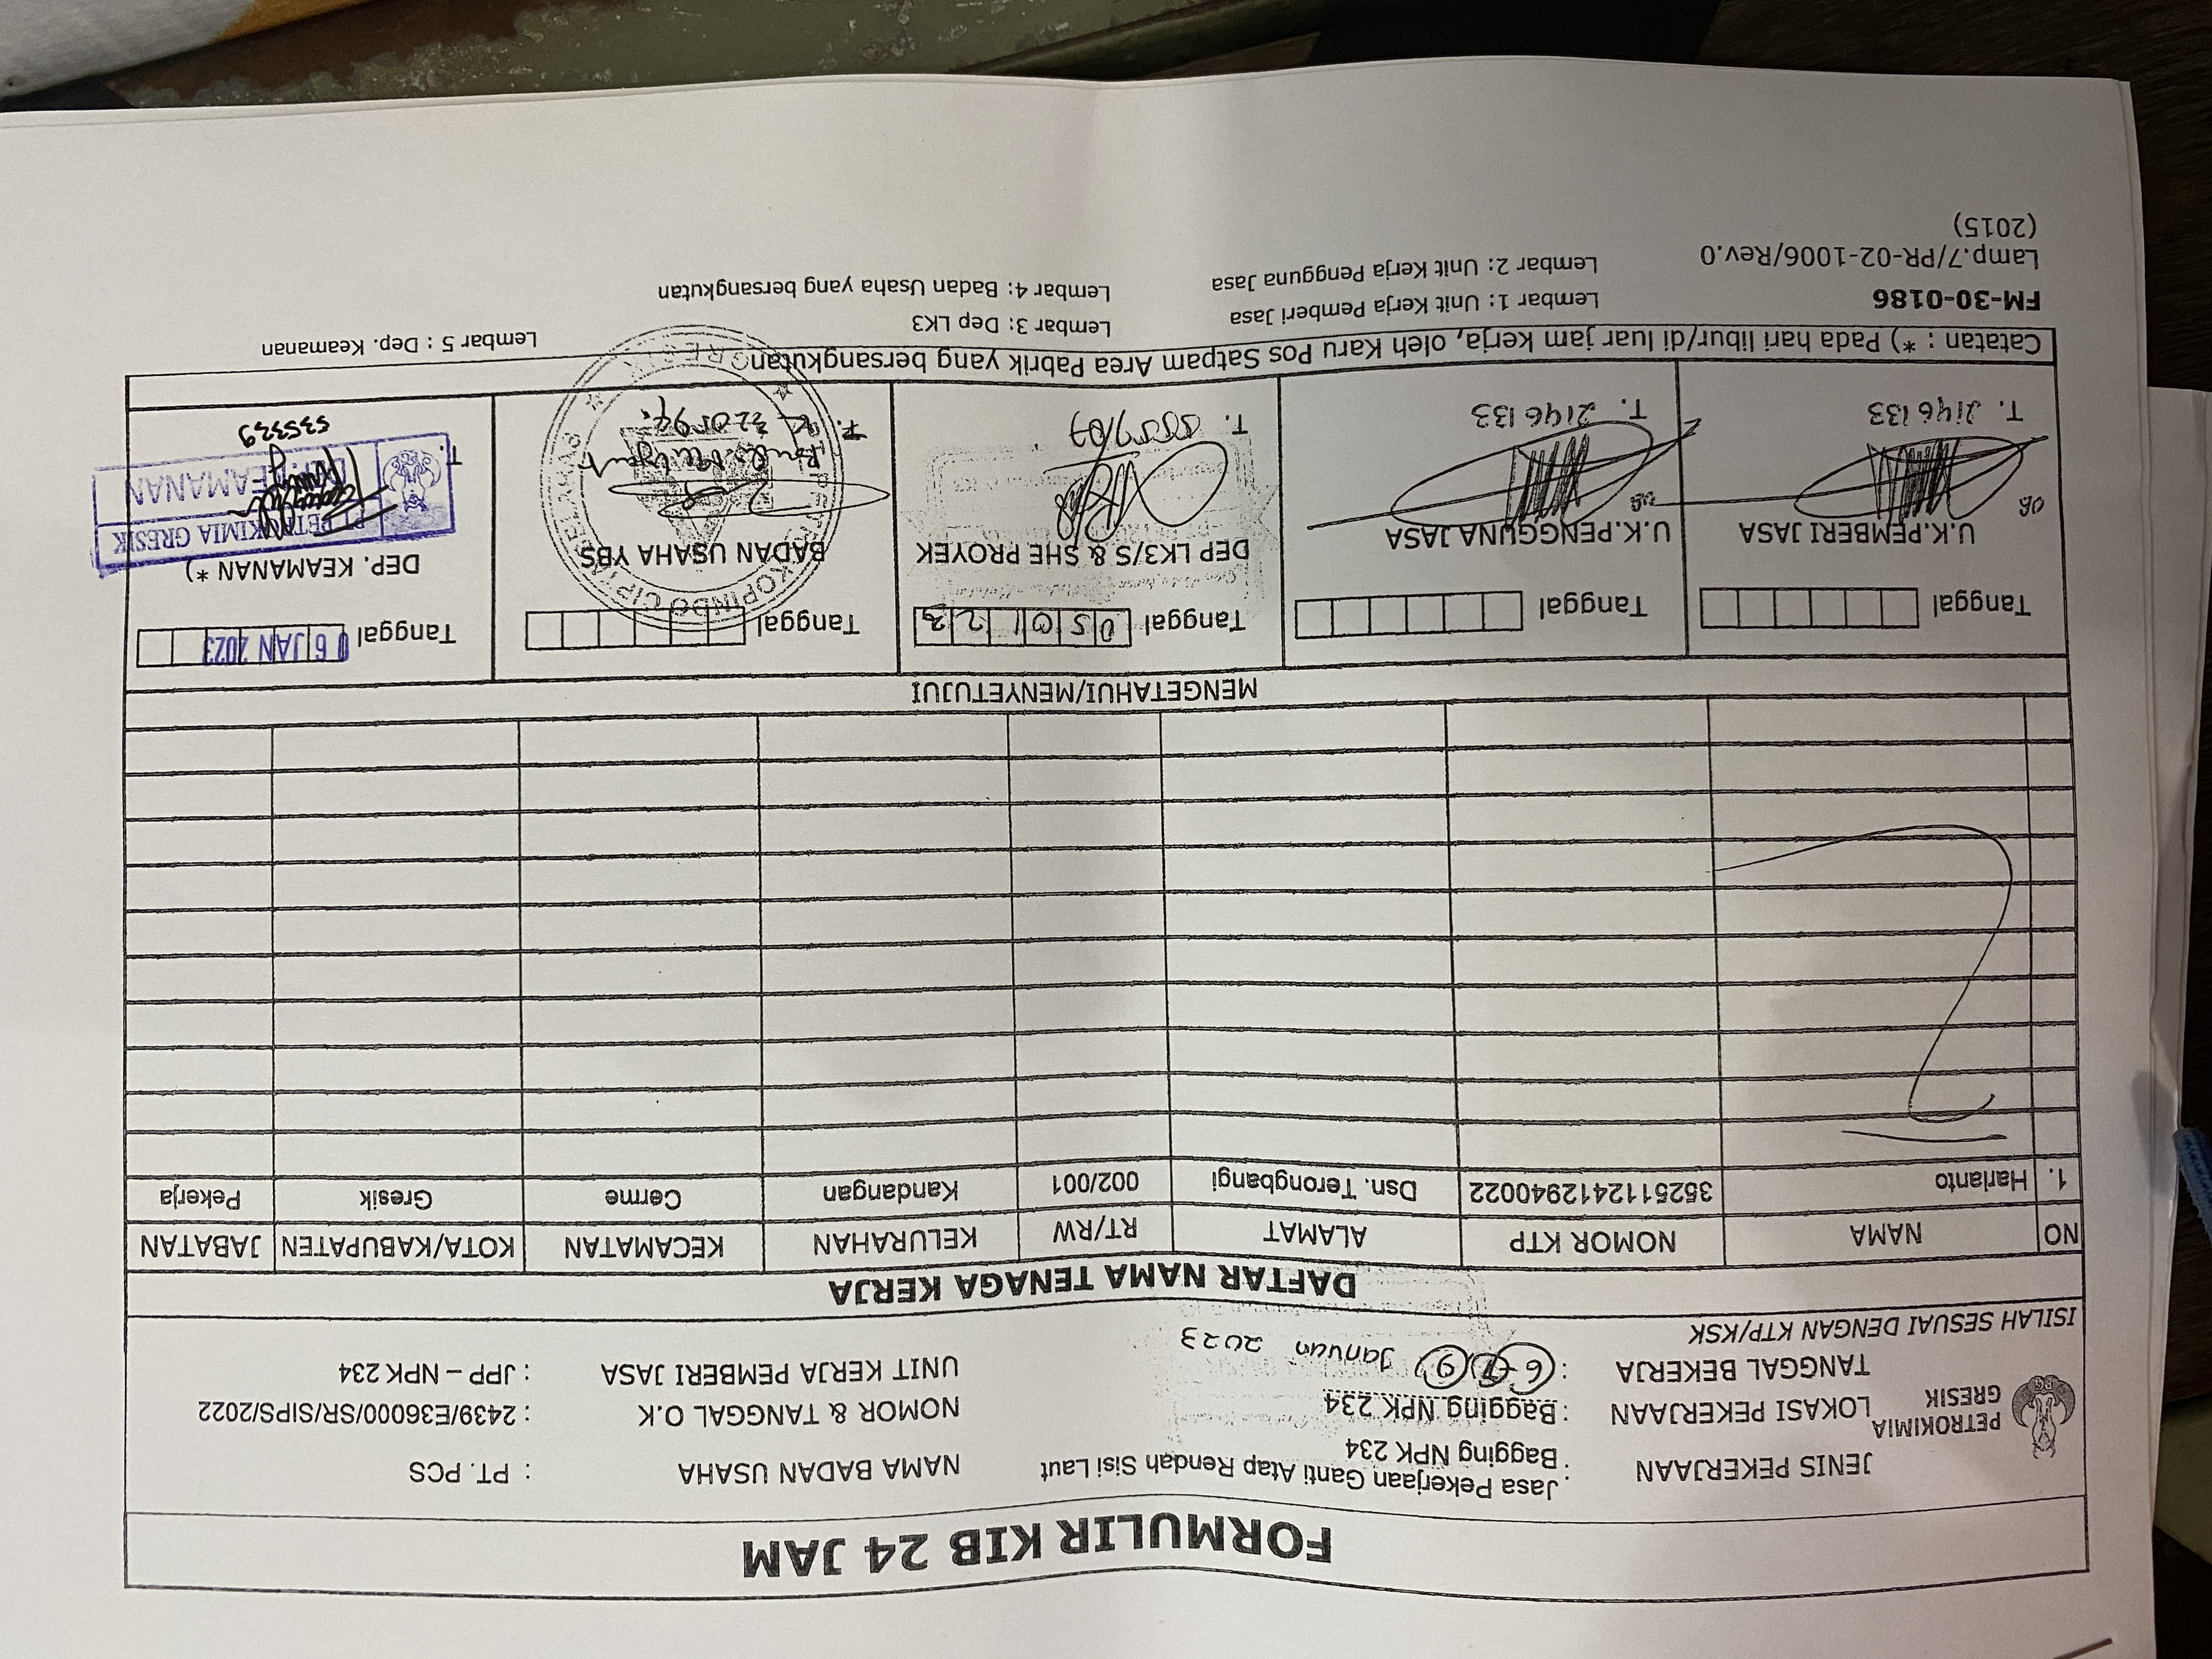 FORMULIR KIB 24 JAM
PETROKIMIA
GRESIK
JENIS PEKERJAAN : Jasa Pekerjaan Ganti Atap Rendah Sisi Laut
Bagging NPK 234
LOKASI PEKERJAAN : Bagging NPK 234
TANGGAL BEKERJA : 6 7 9 Januari 2023
NAMA BADAN USAHA : PT. PCS
NOMOR & TANGGAL O.K : 2439/E36000/SR/SIPS/2022
UNIT KERJA PEMBERI JASA : JPP – NPK 234
ISILAH SESUAI DENGAN KTP/KSK
DAFTAR NAMA TENAGA KERJA
NO NAMA NOMOR KTP ALAMAT RT/RW KELURAHAN KECAMATAN KOTA/KABUPATEN JABATAN
1. Harianto 3525112412940022 Dsn. Terongbangi 002/001 Kandangan Cerme Gresik Pekerja
MENGETAHUI/MENYETUJUI
Tanggal
U.K.PEMBERI JASA
T. 2146133
Tanggal
U.K.PENGGUNA JASA
T. 2146133
Tanggal 05 01 23
DEP LK3/S & SHE PROYEK
T.
Tanggal
BADAN USAHA YBS
Tanggal 06 JAN 2023
DEP. KEAMANAN *)
PT PETROKIMIA GRESIK
DEP. KEAMANAN
T. 535329
Catatan : *) Pada hari libur/di luar jam kerja, oleh Karu Pos Satpam Area Pabrik yang bersangkutan
FM-30-0186
Lamp.7/PR-02-1006/Rev.0
(2015)
Lembar 1: Unit Kerja Pemberi Jasa
Lembar 2: Unit Kerja Pengguna Jasa
Lembar 3: Dep LK3
Lembar 4: Badan Usaha yang bersangkutan
Lembar 5 : Dep. Keamanan